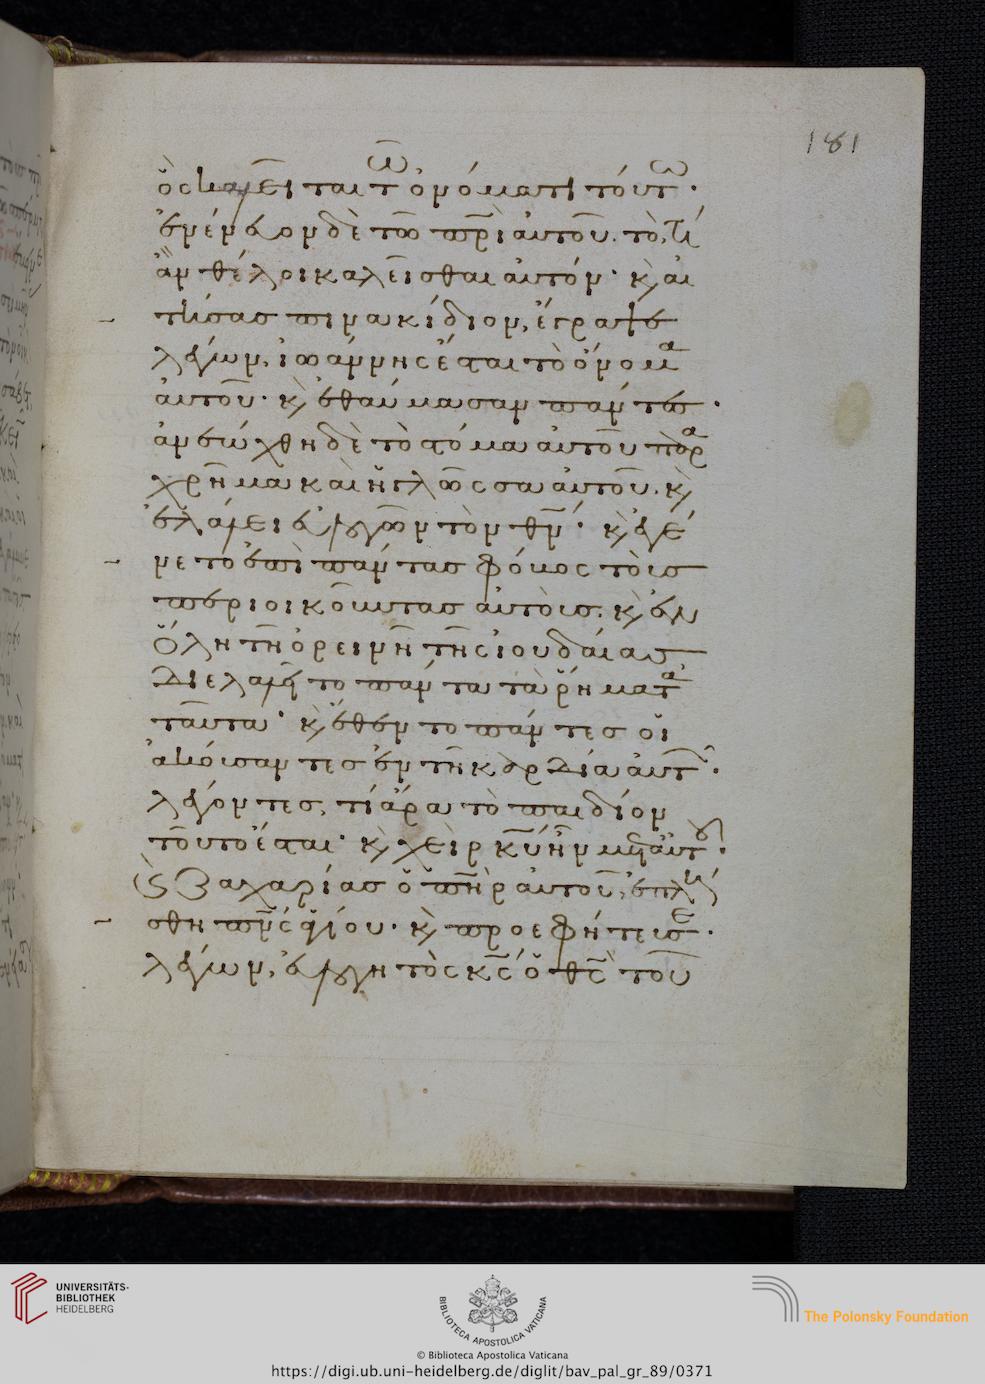 181
ὃς καλεῖται τῶ ὀνόματι τούτω·
ἐνένευον δὲ τῶ πρὶ αὐτοῦ. τὸ, τί
ἂν θέλοι καλεῖσθαι αὐτόν· κ αἰ
τήσας πινακίδιον, ἔγραψε
λέγων, ἰωάννης ἐσται τὸ ὄνομα
αὐτοῦ· κ ἐθαύμασαν πάντες·
ἀνεώχθη δὲ τὸ στόμα αὐτοῦ παρα
χρῆμα καὶ ἡ γλῶσσα αὐτοῦ. κ
ἐλάλει εὐλογῶν τὸν θν· κ ἐγέ
νετο ἐπὶ πάντας φόβος τοὺσ
περιοικοῦντας αὐτοὺσ. κ ἐν
ὅλη τῆ ὀρεινῆ τῆς ἰουδαίας
διελαλεῖτο πάντα τὰ ῥήματα
ταῦτα· κ ἔθεντο πάντες οἱ
ἀκούσαντες ἐν τῆ καρδία αὐτ·
λέγοντες, τί ἄρα τὸ παιδίον
τοῦτο ἔσται· κ χεὶρ κυ ἦν μετ αὐτοῦ·
κ ζαχαρίας ὁ πηρ αὐτοῦ, ἐπλή
σθη πνς ἁγίου· κ προεφήτευσε·
λέγων, εὐλογητὸς κς ὁ θς τοῦ
UNIVERSITÄTS-
BIBLIOTHEK
HEIDELBERG
BIBLIOTECA APOSTOLICA VATICANA
The Polonsky Foundation
© Biblioteca Apostolica Vaticana
https://digi.ub.uni-heidelberg.de/diglit/bav_pal_gr_89/0371